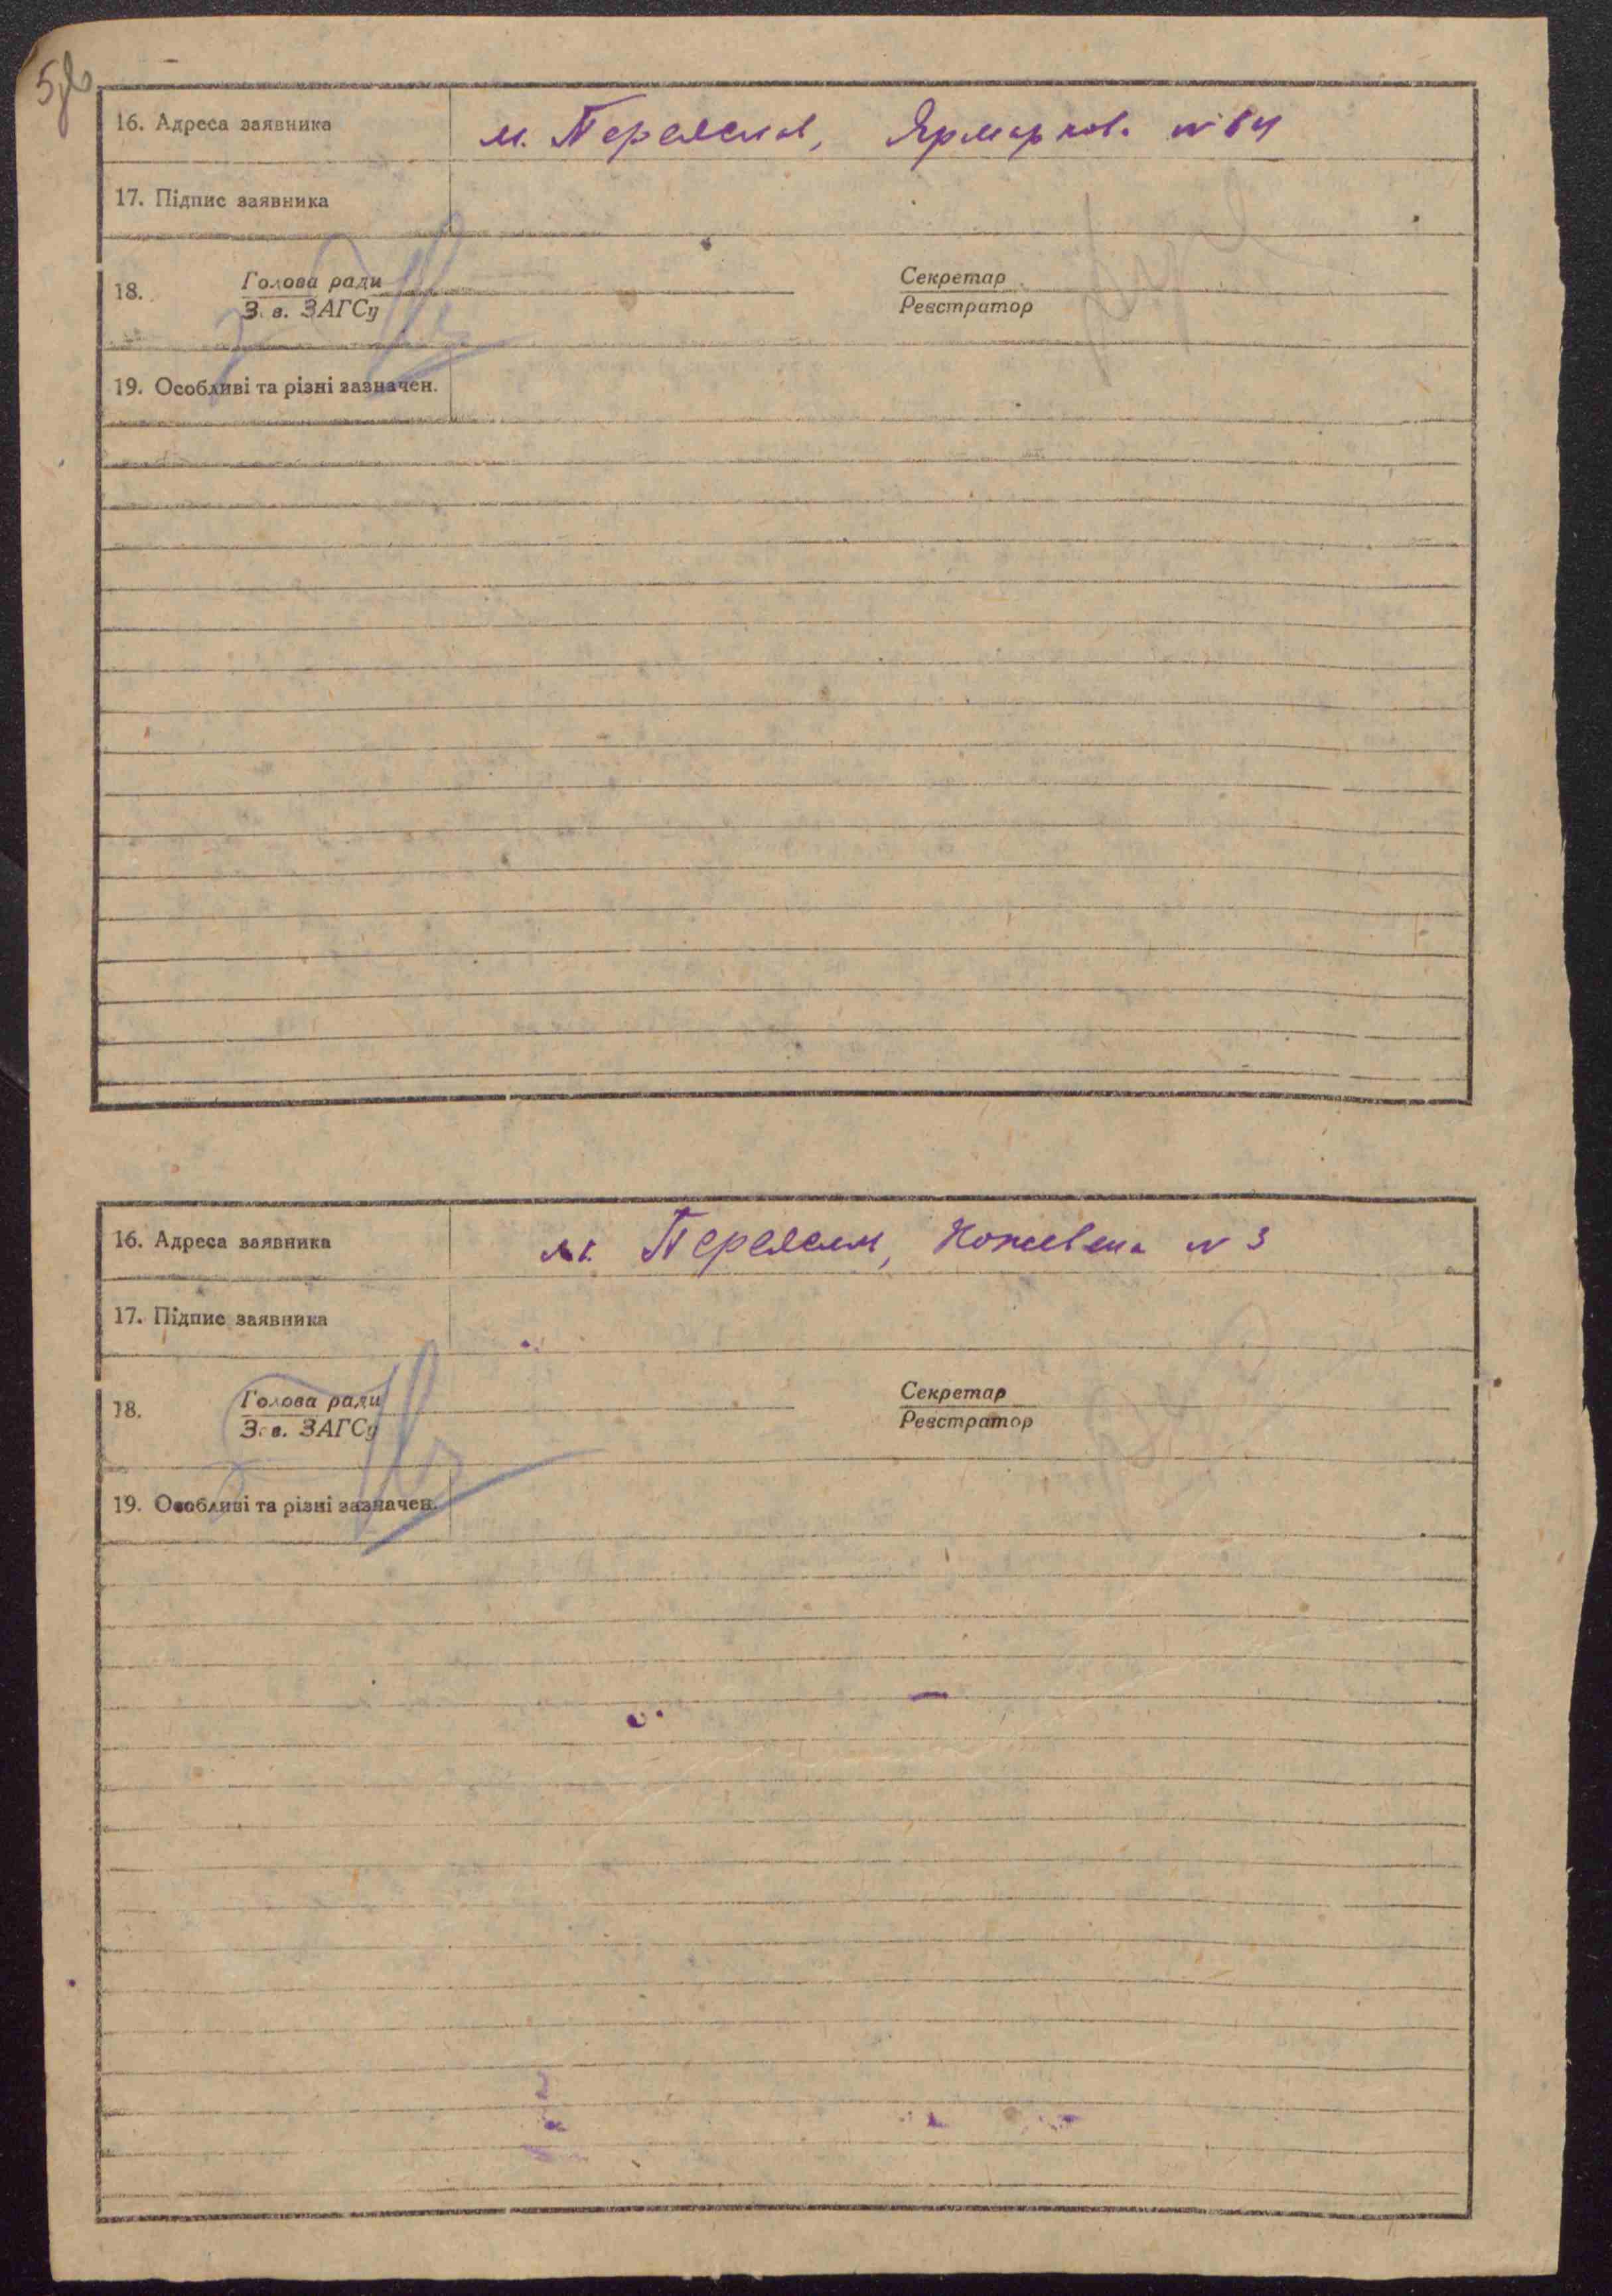 16. Адреса заявника м. Переяслав, Ярмарков. № 64
17. Підпис заявника
18. Голова ради
З. в. ЗАГСу
Секретар
Реєстратор
19. Особливі та різні зазначен.
16. Адреса заявника м. Переяслав, № 3
17. Підпис заявника
18. Голова ради
З. в. ЗАГСу
Секретар
Реєстратор
19. Особливі та різні зазначен.